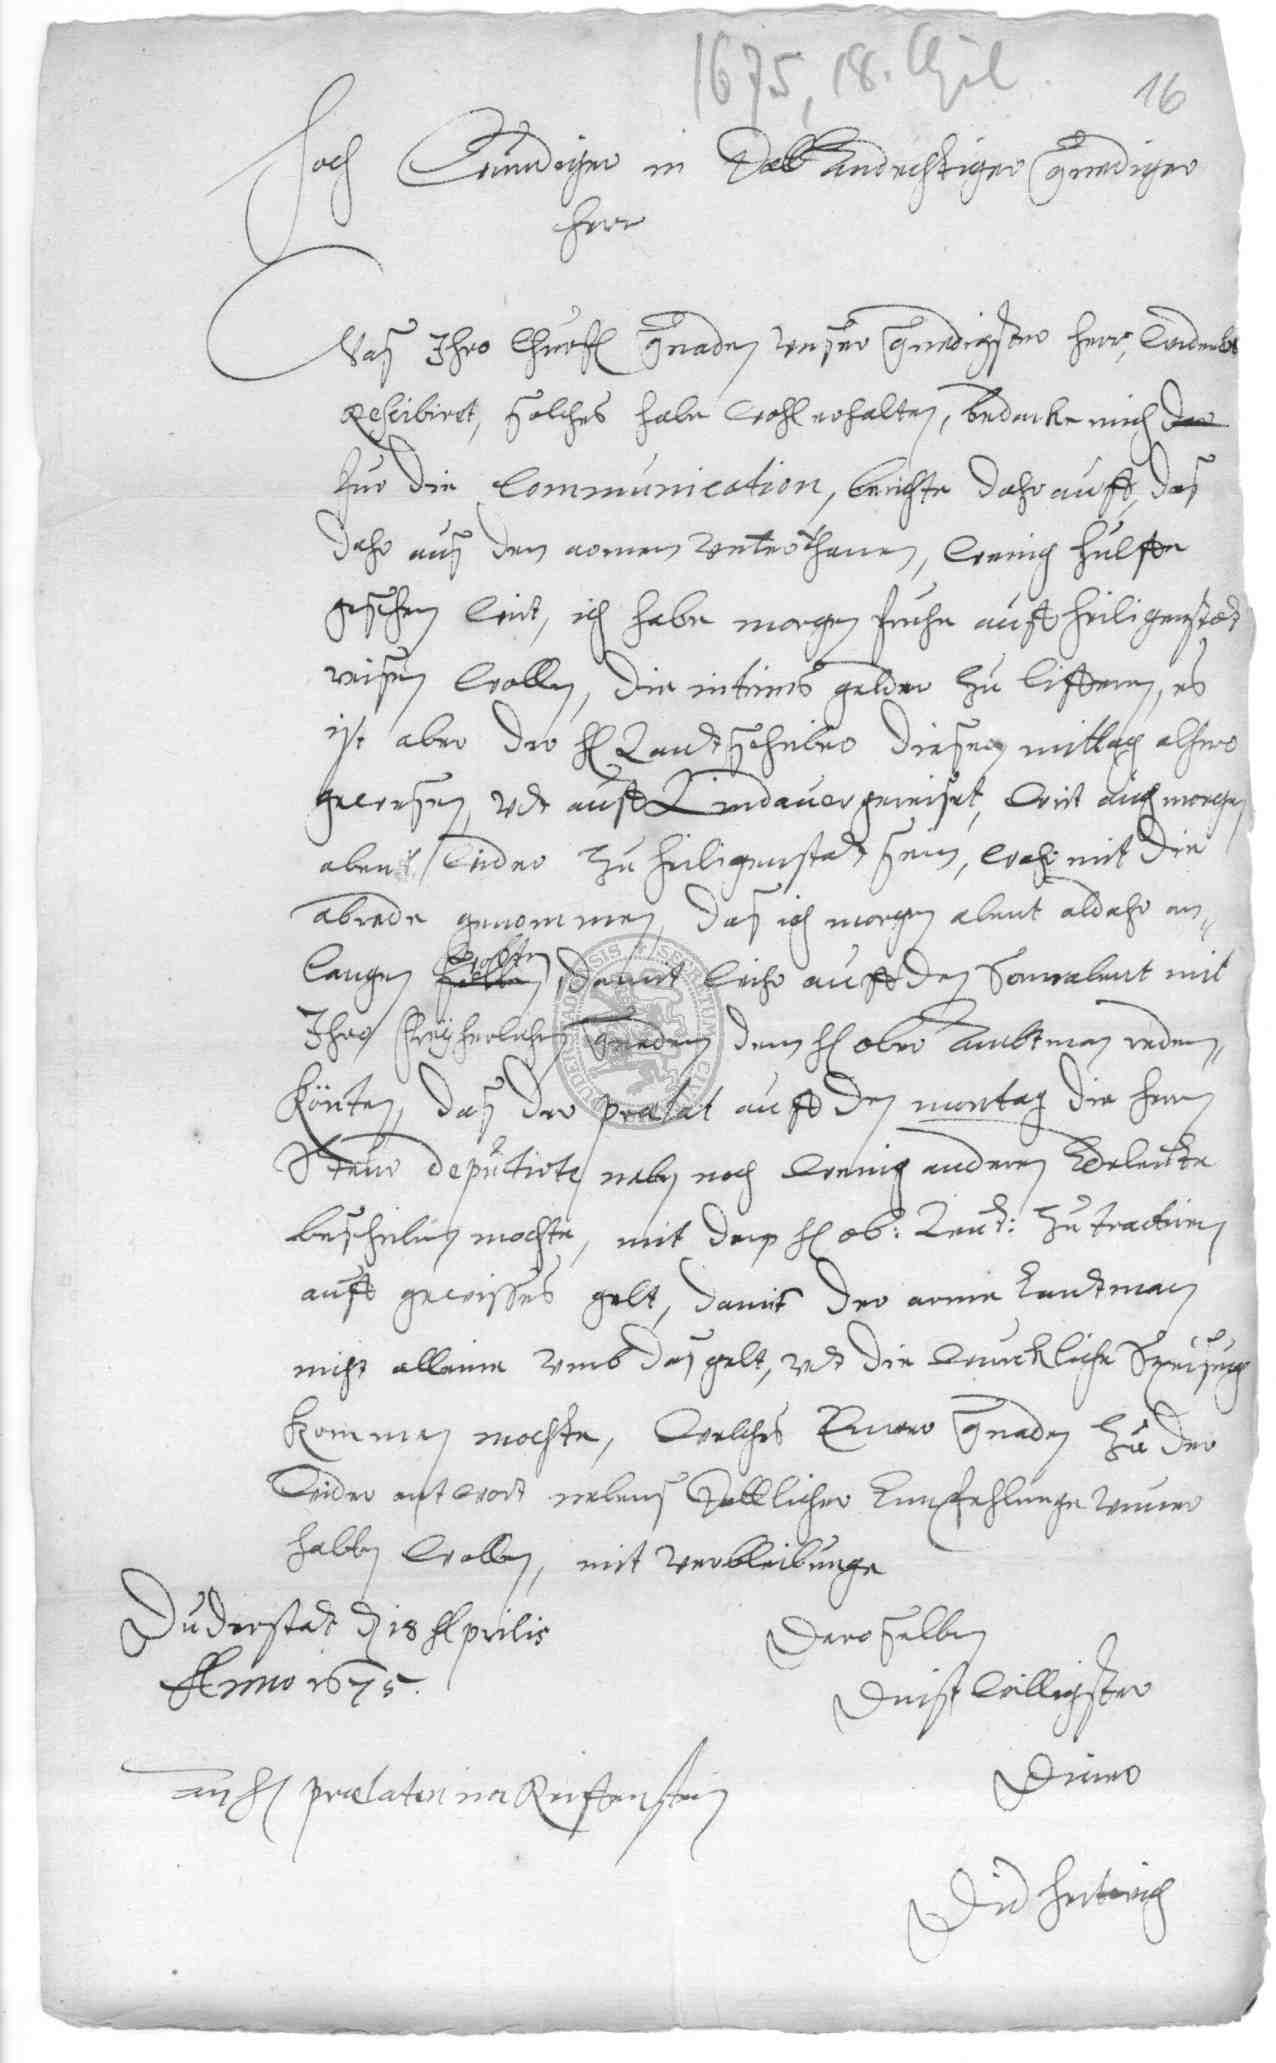 1675, 18. April
16
Hoch Ehrwürdiger in Gott Andechtiger gnediger
Herr
Was Ihro Churfl gnaden unser gnedigster Herr,
Rescribiret, solches habe wohl erhalten, bedancke mich der
fur die Communication, berichte dahrauff, das
dahr auß den armen unterthanen, wenig hulffe
geschehen wirt, ich habe morgen fruhe auff Heiligenstadt
reisen wollen, die intrims gelder zu lifferen, es
ist aber der H Landtschriber diesen mittag alhier
gewesen, undt auff Lindauer gereiset, wirt auch morgen
abent wider zu Heiligenstadt sein, mit die
abrede genommen, das ich morgen abent aldahr an¬
langen sollte wolte, damit wihr auff den Sonnabent mit
Ihro Freyherlichen Gnaden dem H ober Ambtman reden
könten, das der praelat auff den montag die Herrn
Steur deputirte neben noch wenig anderen Edeleute
beschriben mochte, mit dem H ob: Leut: zu tractiren
auff gewisses gelt, damit der arme Landtman
nicht alleine umb das gelt, undt die wurckliche Speisung
kommen mochte, welches Euwer Gnaden zu der
wider antwort nebens Gottlicher Empfehlunge
haben wollen, mit verbleibunge
Duderstadt d 18 Aprilis
Anno 1675.
Deroselben
Dinstwilligster
Diner
an H praelaten in Reiffenstein
Did Hertwig
SECRETUM CIVIT